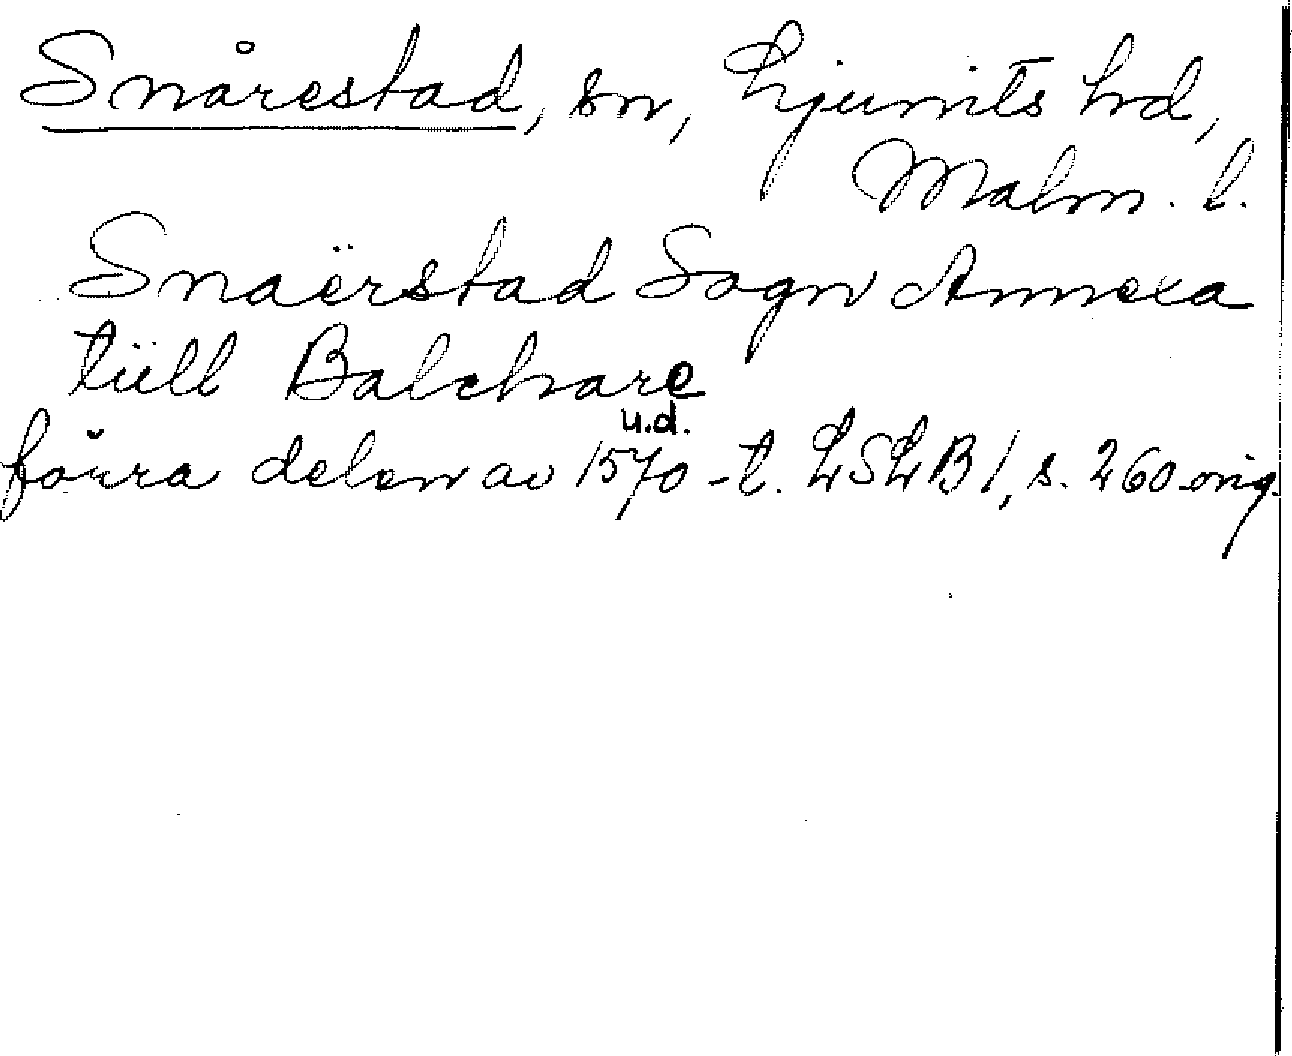 Snårestad, sn, Ljunits hd,
Malm. l.
Snaërstad Sogn Annexa
tüll Balchare
u.d.
förra delen av 1570-t. LSLB 1, s. 260 orig.